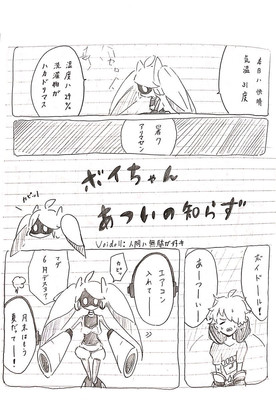 本日ハ快晴
気温31度
湿度ハ29%
洗濯物ガ
ハカドリマス
暑ク
アリマセン
ボイちゃん
あついの知らず
Voidoll:人間ハ無駄が好キ
ボイドール!
あーつーいー
エアコン
入れてー
マダ
6月デスヨ?
月末はもう
夏だってー!